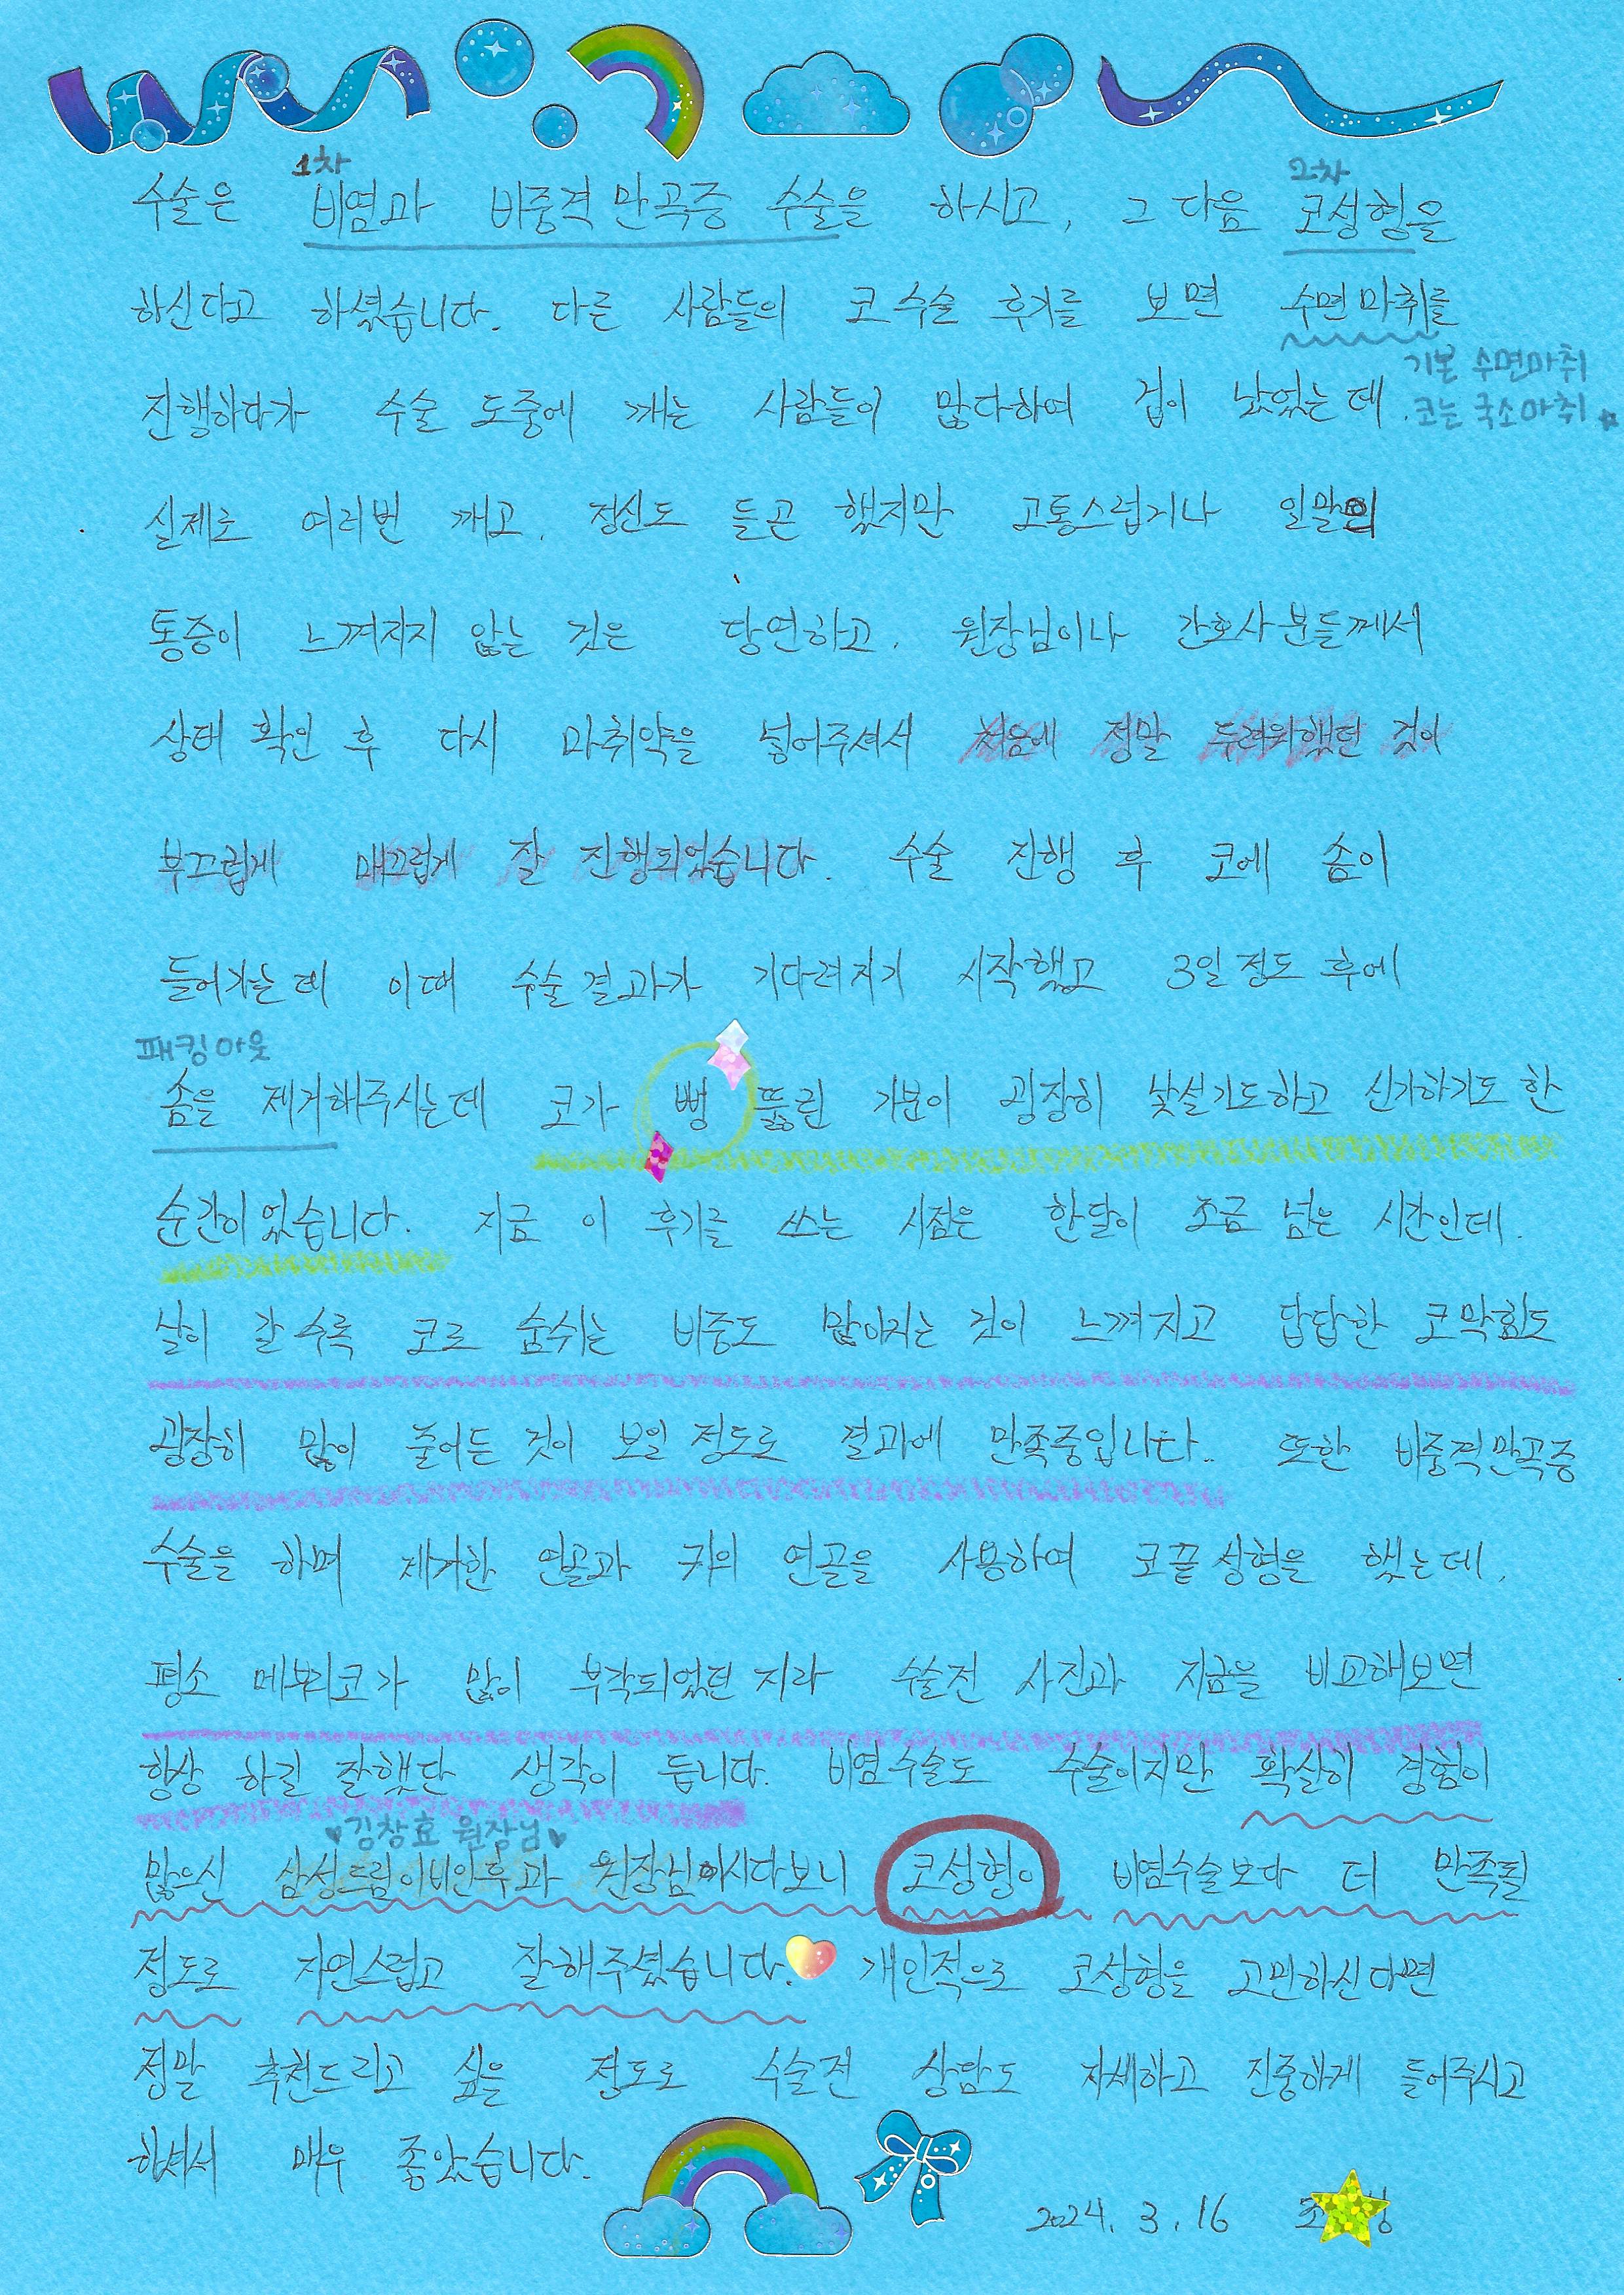 1차 2차
수술은 비염과 비중격 만곡증 수술을 하시고, 그 다음 코성형을
하신다고 하셨습니다. 다른 사람들의 코 수술 후기를 보면 수면마취를
기본 수면마취
진행하다가 수술 도중에 깨는 사람들이 많다하여 겁이 났었는데.
코는 국소마취
실제로 여러번 깨고, 정신도 들곤 했지만 고통스럽거나 일말의
통증이 느껴지지 않는 것은 당연하고, 원장님이나 간호사분들께서
상태 확인 후 다시 마취약을 넣어주셔서 처음에 정말 두려워했던 것이
부끄럽게 매끄럽게 잘 진행되었습니다. 수술 진행 후 코에 솜이
들어가는데 이때 수술결과가 기다려지기 시작했고 3일 정도 후에
패킹아웃
솜을 제거해주시는데 코가 뻥 뚫린 기분이 굉장히 낯설기도하고 신기하기도 한
순간이었습니다. 지금 이 후기를 쓰는 시점은 한달이 조금 넘은 시간인데.
날이 갈수록 코로 숨쉬는 비중도 많아지는 것이 느껴지고 답답한 코막힘도
굉장히 많이 줄어든 것이 보일 정도로 결과에 만족중입니다.. 또한 비중격만곡증
수술을 하며 제거한 연골과 귀의 연골을 사용하여 코끝 성형을 했는데,
평소 메부리코가 많이 부각되었던지라 수술전 사진과 지금을 비교해보면
항상 하길 잘했단 생각이 듭니다. 비염수술도 수술이지만 확실히 경험이
♥김창효 원장님♥
많으신 삼성드림이비인후과 원장님이시다보니 코성형이 비염수술보다 더 만족될
정도로 자연스럽고 잘해주셨습니다. 개인적으로 코성형을 고민하신다면
정말 추천드리고 싶을 정도로 수술전 상담도 자세하고 진중하게 들어주시고
하셔서 매우 좋았습니다.
2024. 3. 16 조